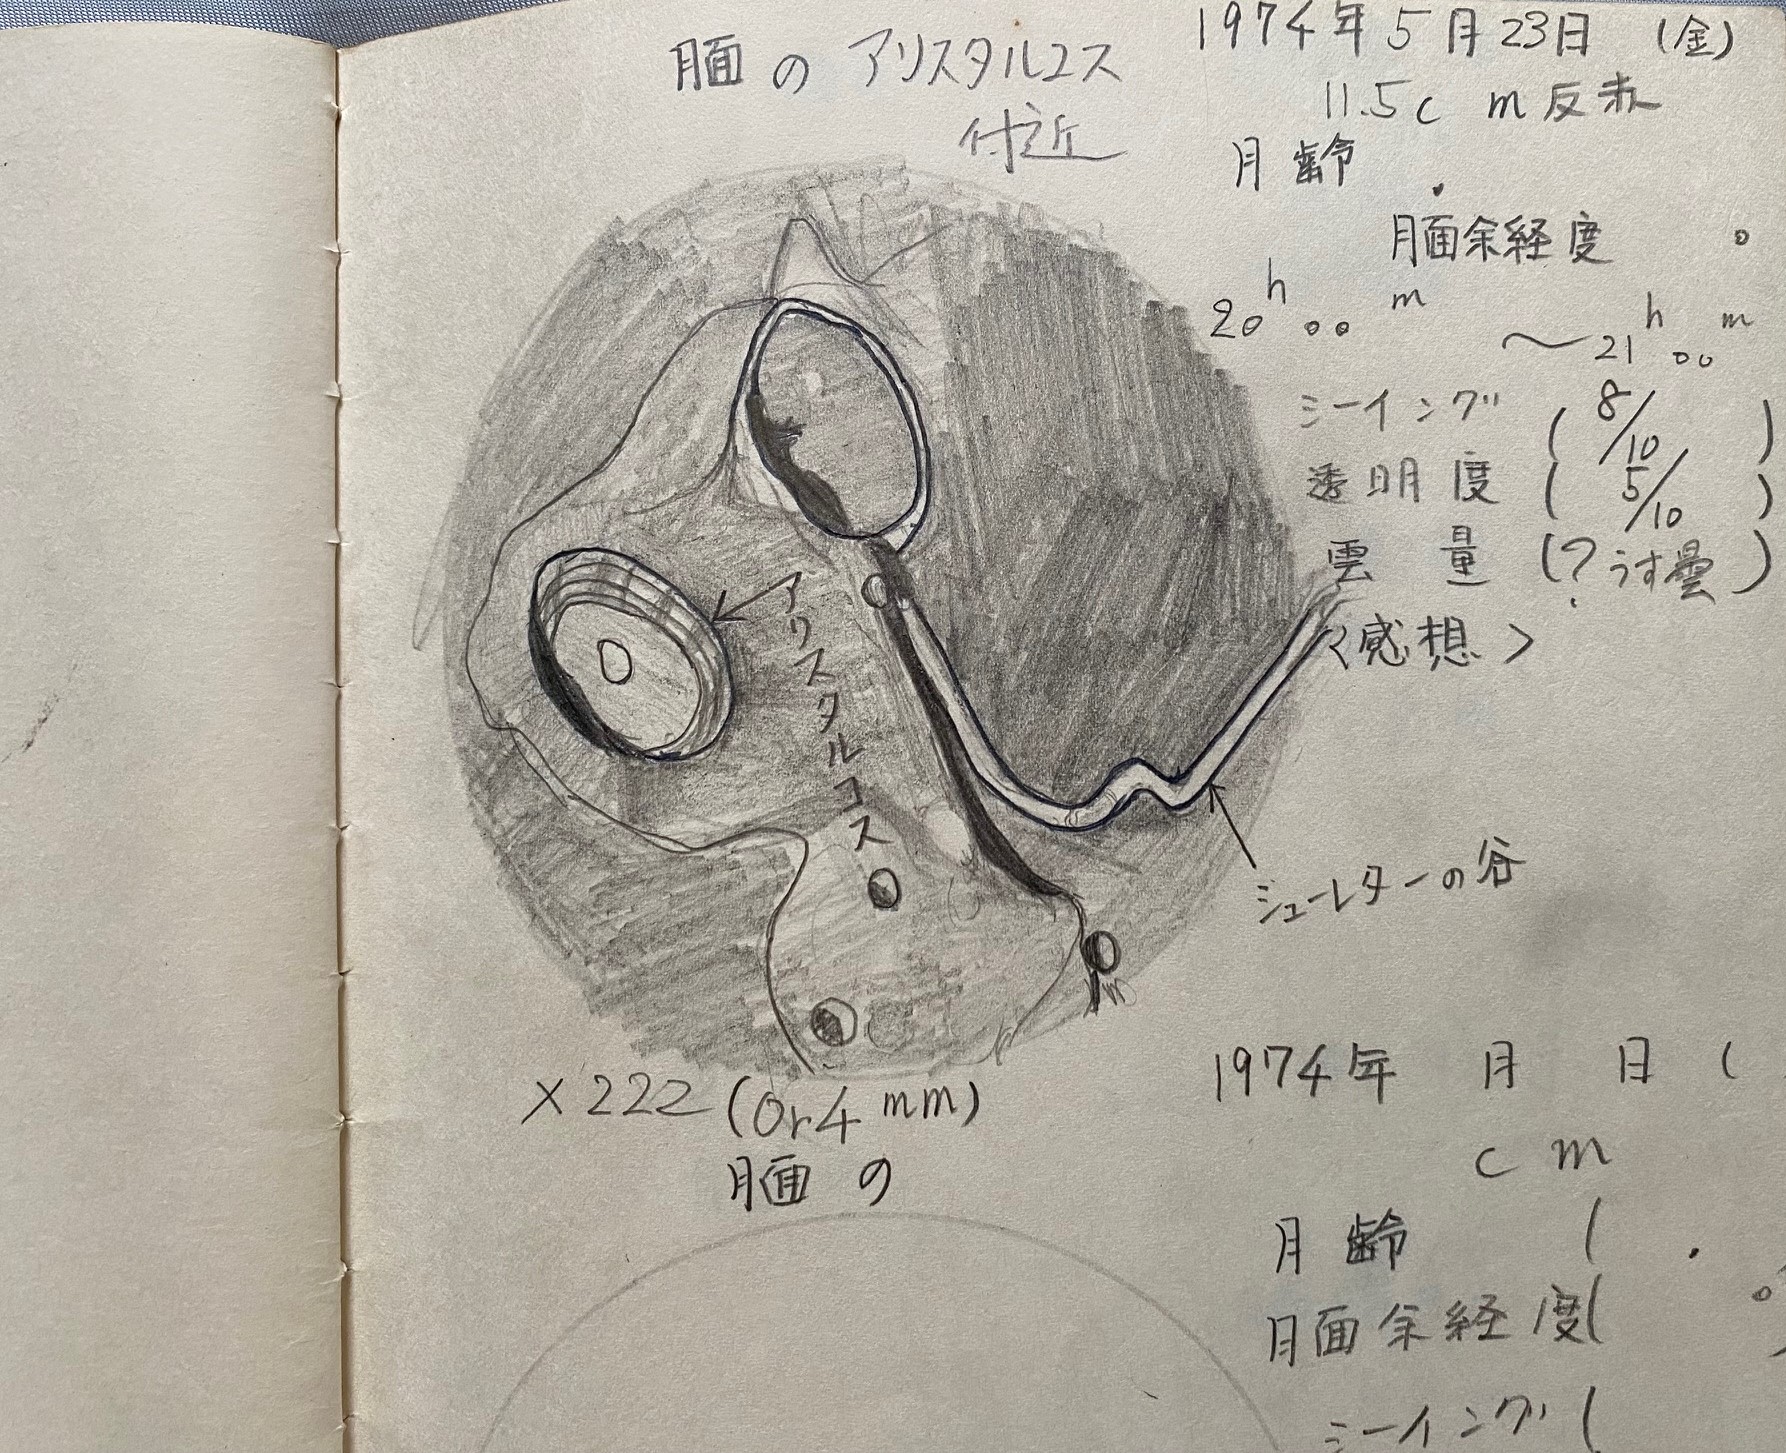 月面のアリスタルコス
付近
1974年5月23日 (金)
11.5cm反赤
月齢 .
月面余経度 °
20h00m
~21h00m
シーイング (8/10)
透明度 (5/10)
雲量 (?うす曇)
<感想>
アリスタルコス
シューレターの谷
×222 (Or4mm)
月面の
1974年 月 日 (
cm
月齢 ( .
月面余経度( °
シーイング (